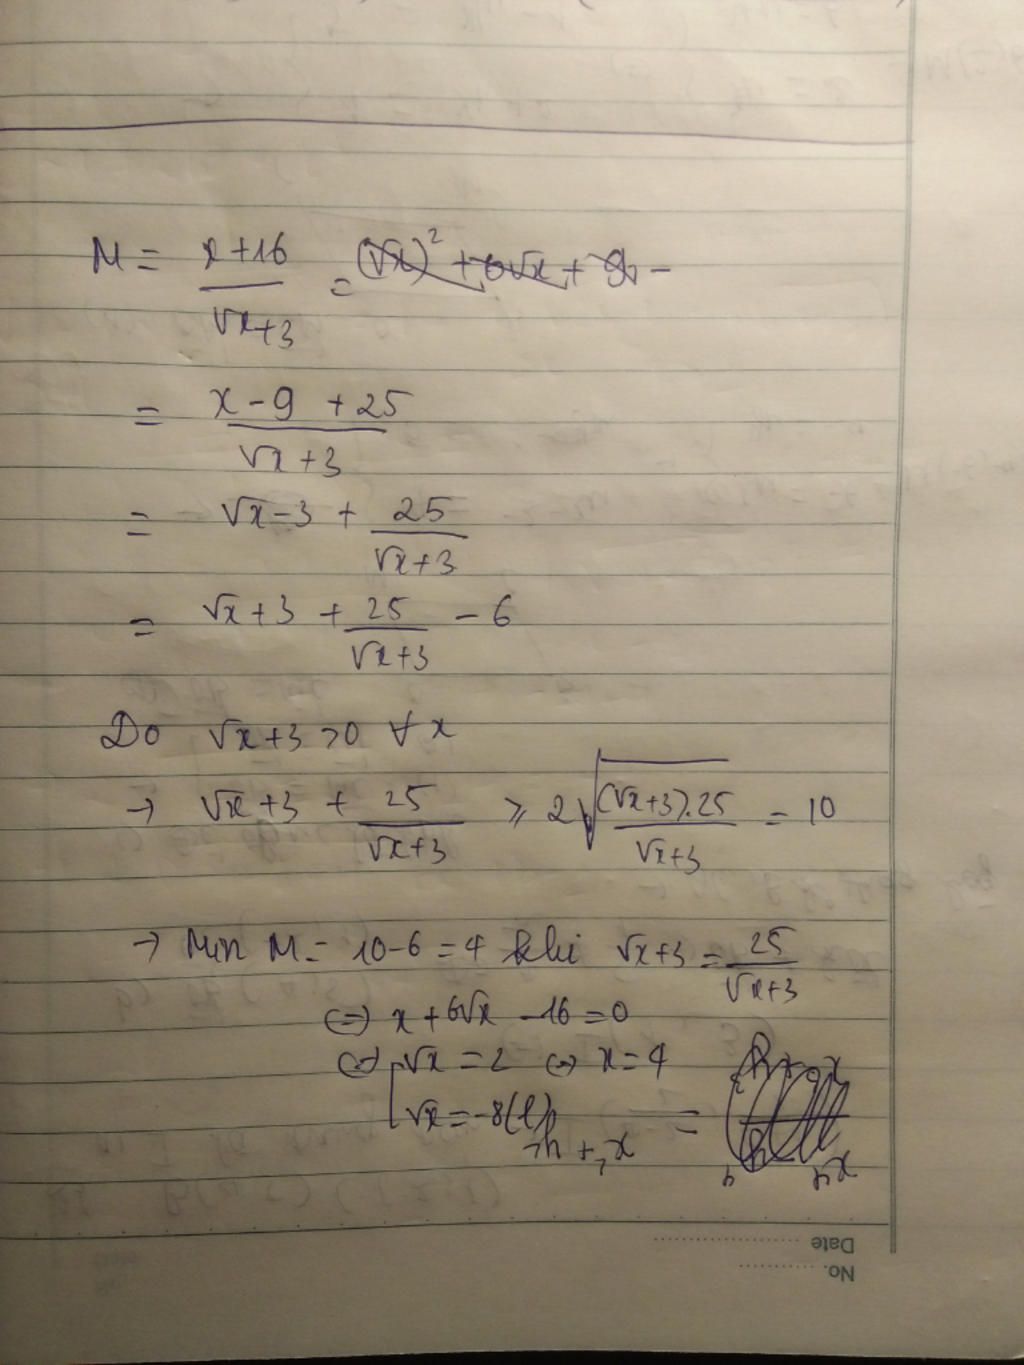 M = x+16 / √x+3 = (√x)² + 6√x + 9 -
= x-9 +25 / √x+3
= √x-3 + 25 / √x+3
= √x+3 + 25 / √x+3 - 6
Do √x+3 >0 ∀ x
→ √x+3 + 25 / √x+3 ≥ 2√((√x+3).25 / √x+3) = 10
→ Min M = 10-6 = 4 khi √x+3 = 25 / √x+3
⇔ x+6√x -16 = 0
⇔ [ √x = 2 ⇔ x = 4
√x = -8 (l)
Date
No.